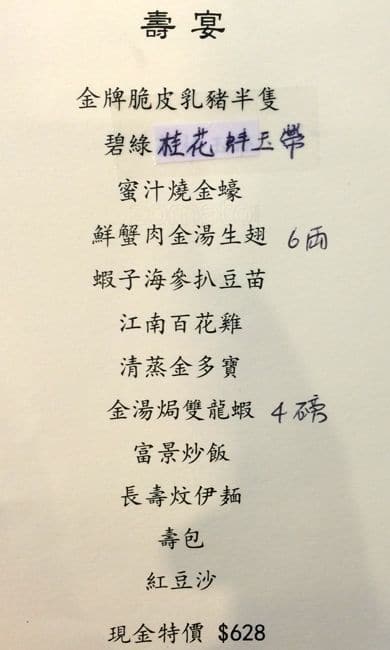 壽宴
金牌脆皮乳豬半隻
碧綠桂花蚌玉帶
蜜汁燒金蠔
鮮蟹肉金湯生翅 6両
蝦子海參扒豆苗
江南百花雞
清蒸金多寶
金湯焗雙龍蝦 4磅
富景炒飯
長壽炆伊麵
壽包
紅豆沙
現金特價 $628